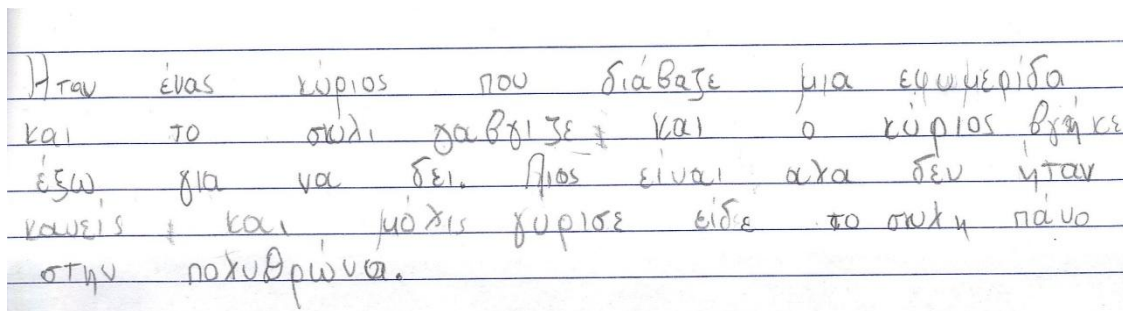 Ήταν ένας κύριος που διάβαζε μια εφωμερίδα
και το σκύλι γαβγιζε, και ο κύριος βγήκε
έξω για να δει. Πιος είναι αλα δεν ήταν
κανείς, και μόλις γύρισε είδε το σκυλη πάνο
στην πολυθρώνα.